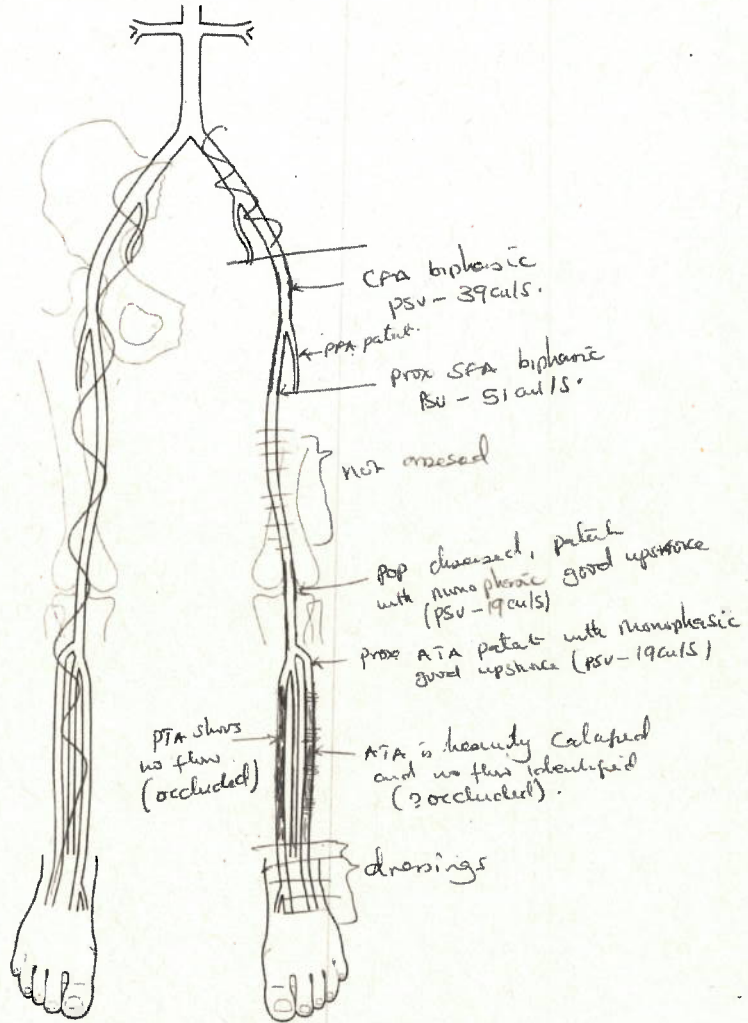 CFA biphasic
PSV - 39cm/s.
PFA patent.
prox SFA biphasic
PSV - 51 cm/s.
not assessed
POP diseased, patent
with monophasic good upstroke
(PSV - 19cm/s)
prox ATA patent with monophasic
good upstroke (PSV - 19cm/s)
PTA shows
no flow
(occluded)
ATA is heavily calcified
and no flow identified
(? occluded).
dressings